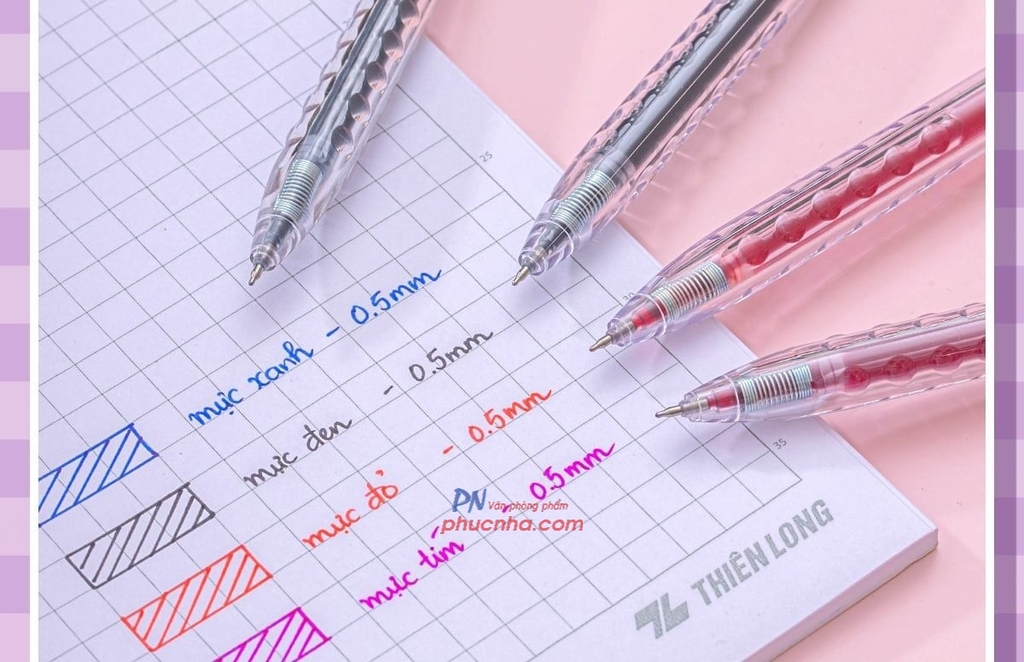 25
30
mực xanh - 0.5mm
mực đen - 0.5mm
mực đỏ - 0.5mm
mực tím - 0.5mm
35
PN Văn phòng phẩm
phucnha.com
THIÊN LONG